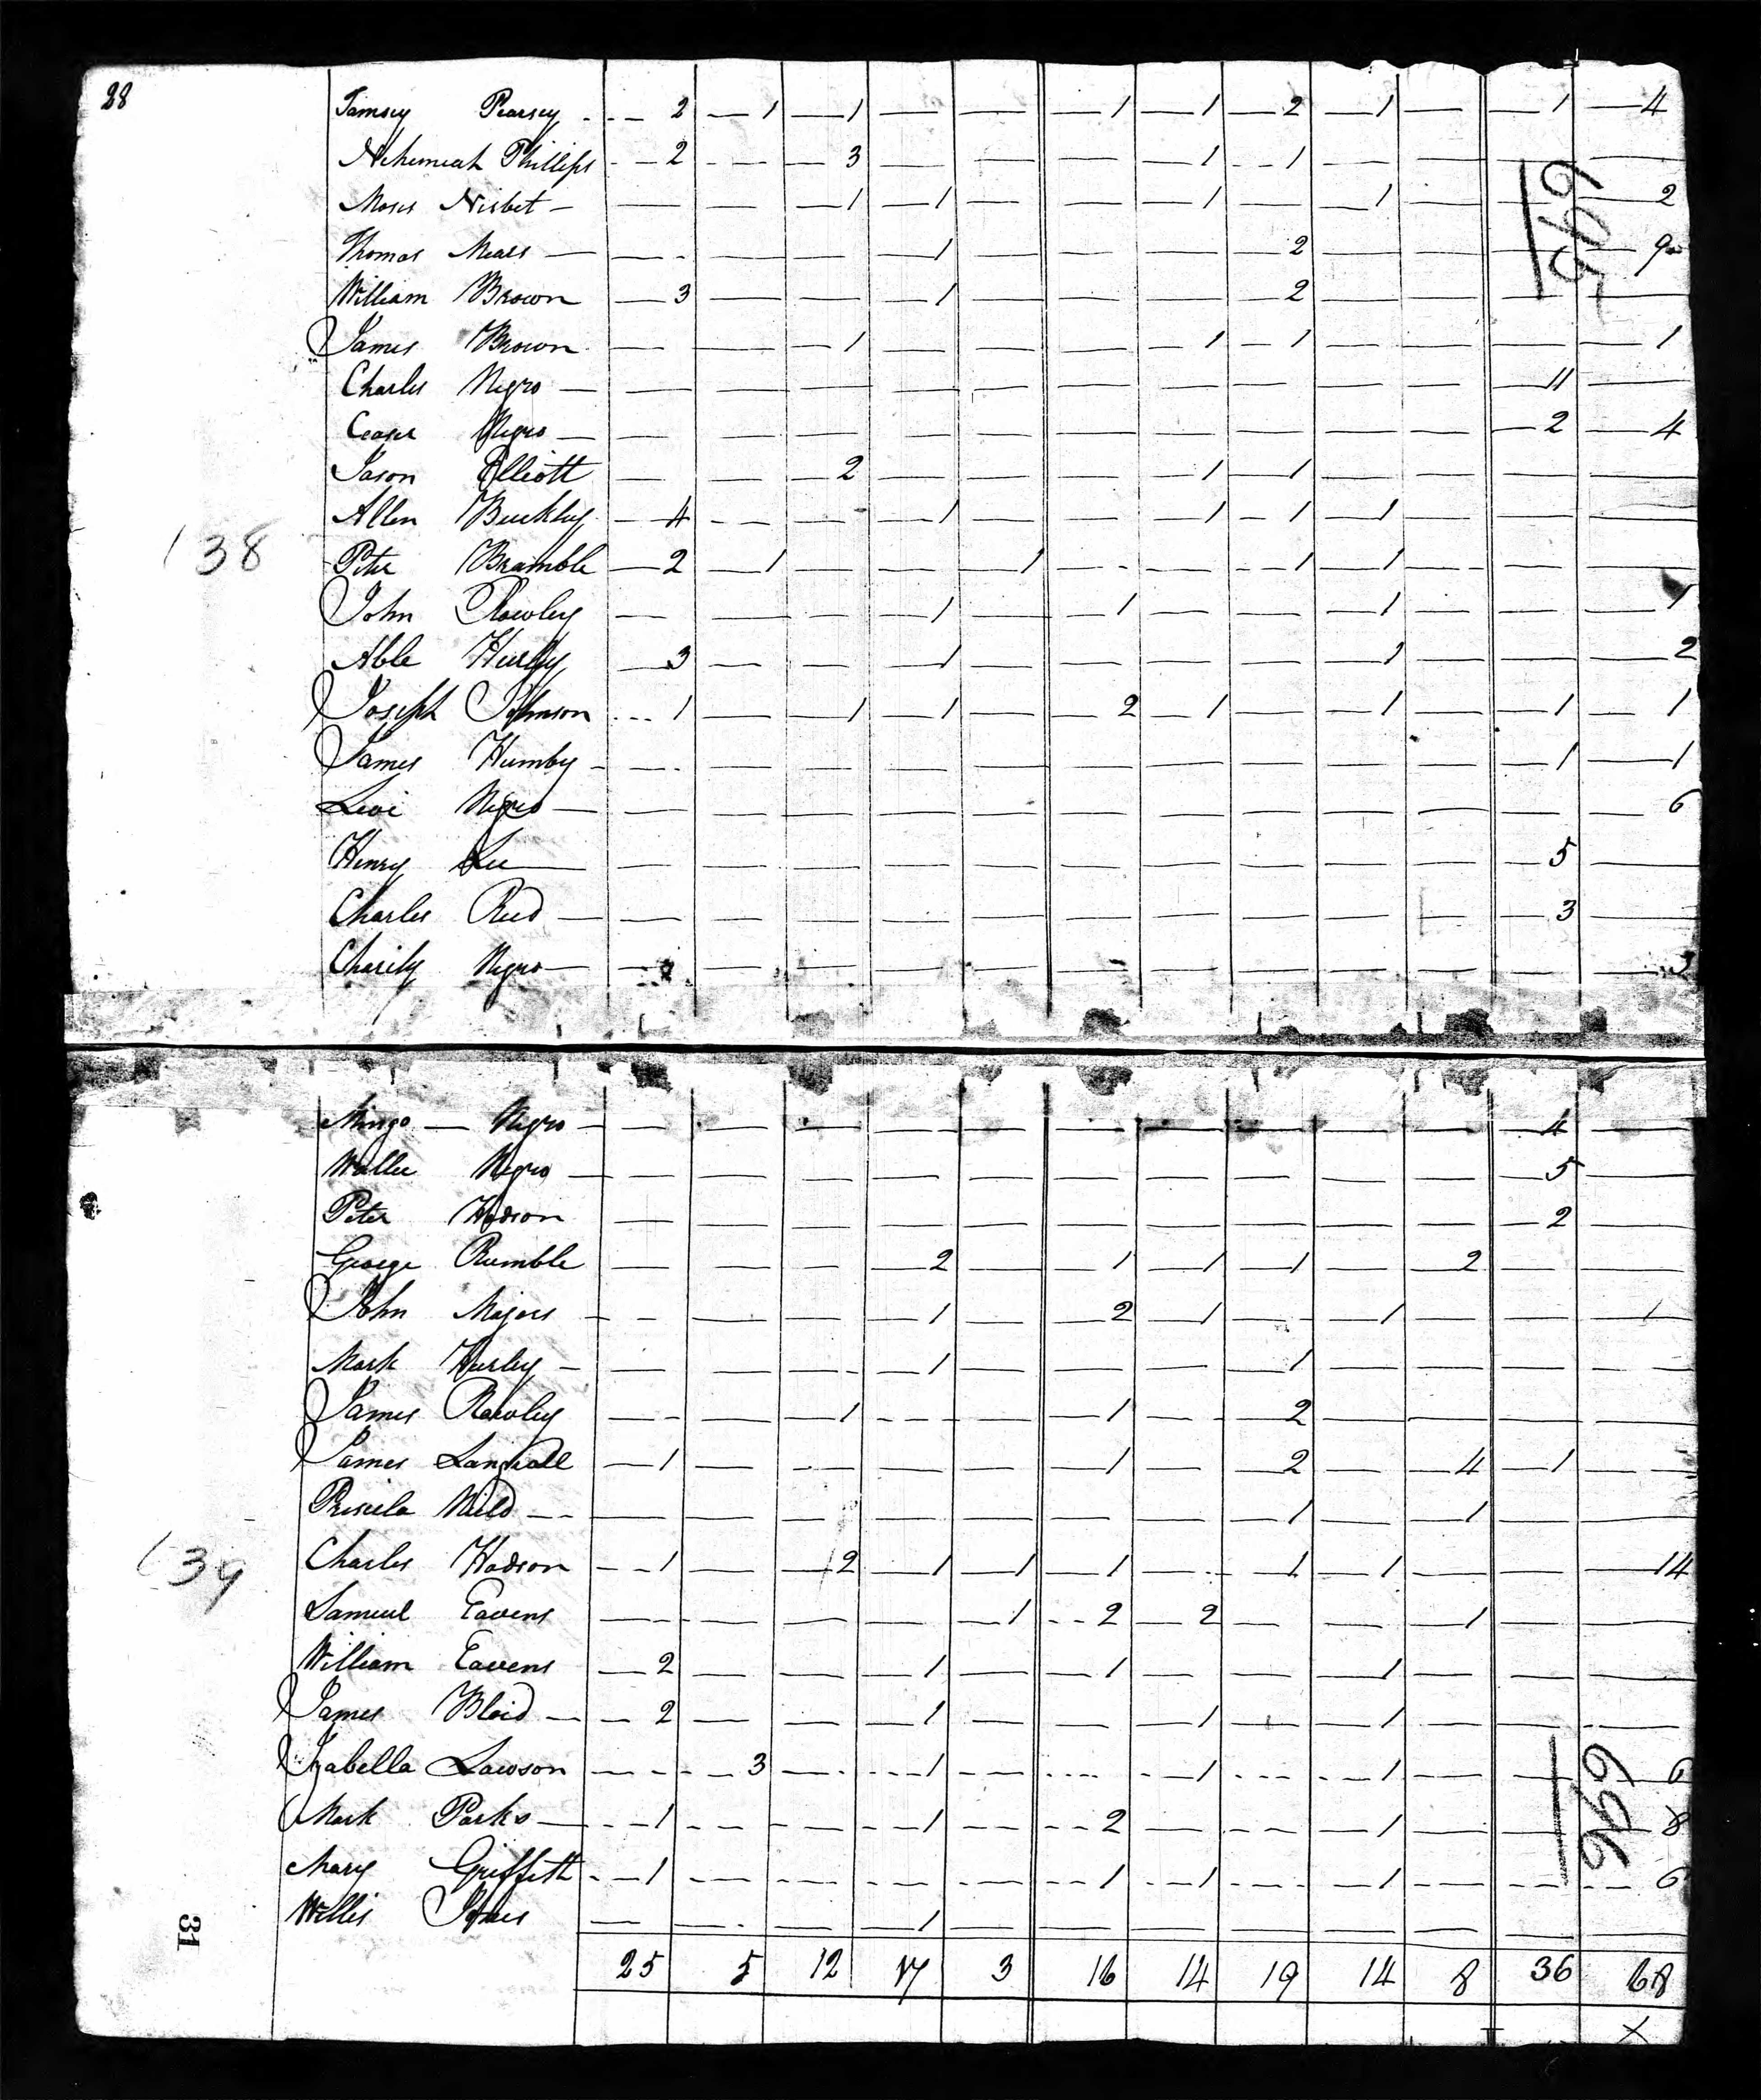 28
Tamsey Pearsey - - - 2 — 1 — 1 — — — 1 — 1 — 2 — 1 — — 1 — 4
Nehemiah Phillips - — 2 - - — 3 — — — — 1 - — 1 — — — —
Moses Nisbet — — — — 1 — 1 — — — 1 — — 1 — — — 2
Thomas Meals — — - — — — 1 — — — 2 — — — 9
William Brown — 3 — — — 1 — — — 2 — — — —
James Brown — — — 1 — — — — 1 — 1 — — — — 1
Charles Negro — — — — — — — — — — — 11 —
Ceaser Negro — — — — — — — — — — — 2 — 4
Jason Elliott — — — 2 — — — — 1 — 1 — — — —
Allen Buckley — 4 - - — — 1 — — — 1 — 1 — 1 — — —
Peter Bramble — 2 — 1 — — — 1 - - - — 1 — 1 - - — —
John Rowley — — — — 1 — — 1 — — — 1 — — — 1
Able Hurley — 3 — — — 1 — — — — — 1 — — — 2
Joseph Johnson - - - 1 — — 1 — 1 — — 2 — 1 — — 1 — — 1 — 1
James Humby - — - — — — — — — — — — — 1 — 1
Levi Negro — — — — — — — — — — — — 6
Henry Lee — — — — — — — — — — — 5 —
Charles Reed — — — — — — — — — — — 3 —
Charity Negro — — — — — — — — — — — — 3
695
138
Mingo — Negro — — — — — — — — — — — 4 —
Negro — — — — — — — — — — — 5 —
Peter Hodson — — — — — — — — — — 2 —
George Rumble — — — — 2 — — 1 — 1 — 1 — — 2 — —
John Majors — - — — — 1 — — 2 — 1 — — 1 — — — 1
Mark Hurley — — — — — 1 — — — — 1 — — — —
James Rowley — - — — 1 - - - — — 1 — - — 2 — — — —
James Langrall — 1 — — — — — 1 — 2 — — 4 — 1 — —
Prisiela — - - — — — — — — — — 1 — — 1 — —
Charles Hodson — - 1 — — 2 — 1 — 1 — 1 — - — 1 — 1 — — 14
Samuel Eavens — - - — — — — 1 - - 2 — 2 — — — 1 — —
William Eavens — 2 — — — 1 — — 1 — — — 1 — — —
James Bloid — — 2 — — — 1 — — — 1 — — 1 — — —
Izabella Lawson — - - - — 3 — - - - — 1 — - - - - - — 1 - - - - — 1 — — 6
Mark Parks — - - 1 - - - — - - — 1 — - - - 2 — - - - — 1 — — 8
Mary Griffith - — 1 - - - - - - - - - - - 1 — 1 - - - — 1 - - - - 6
Willis Jones — — - — — 1 — — — — — — — —
139
696
31
25 5 12 17 3 16 14 19 14 8 36 68
X